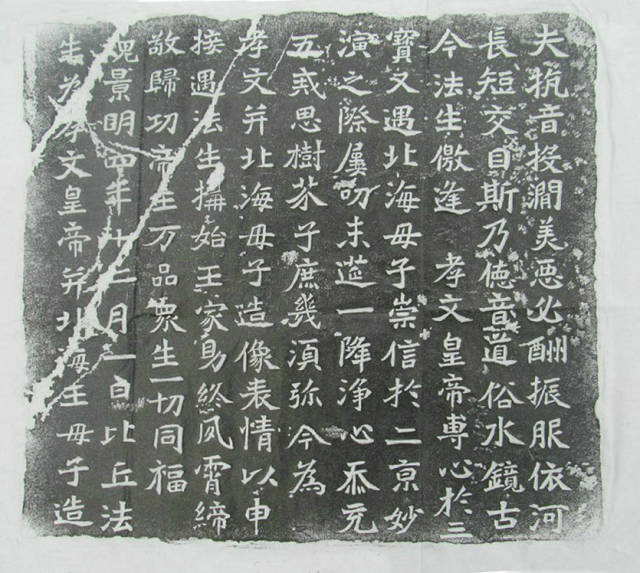 夫抗音投澗美惡必酬振服依河
長短交目斯乃德音道俗水鏡古
今法生儌逢 孝文皇帝專心於三
寶又遇北海母子崇信於二京妙
演之際屢叨末莚一降淨心忝充
五戒思樹芥子庶幾須弥今為
孝文并北海母子造像表情以申
接遇法生搆始王家易終夙霄締
敬歸功帝王万品眾生一切同福
魏景明四年十二月一日比丘法
生為孝文皇帝并北海王母子造